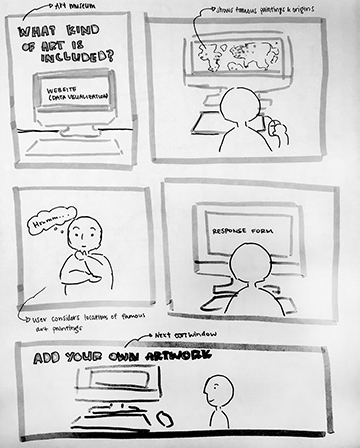 Art museum
WHAT KIND
OF ART IS
INCLUDED?
WEBSITE
(DATA VISUALIZATION)
shows famous paintings & origins
Hmmm...
user considers locations of famous
art paintings
RESPONSE FORM
Next door window
ADD YOUR OWN ARTWORK